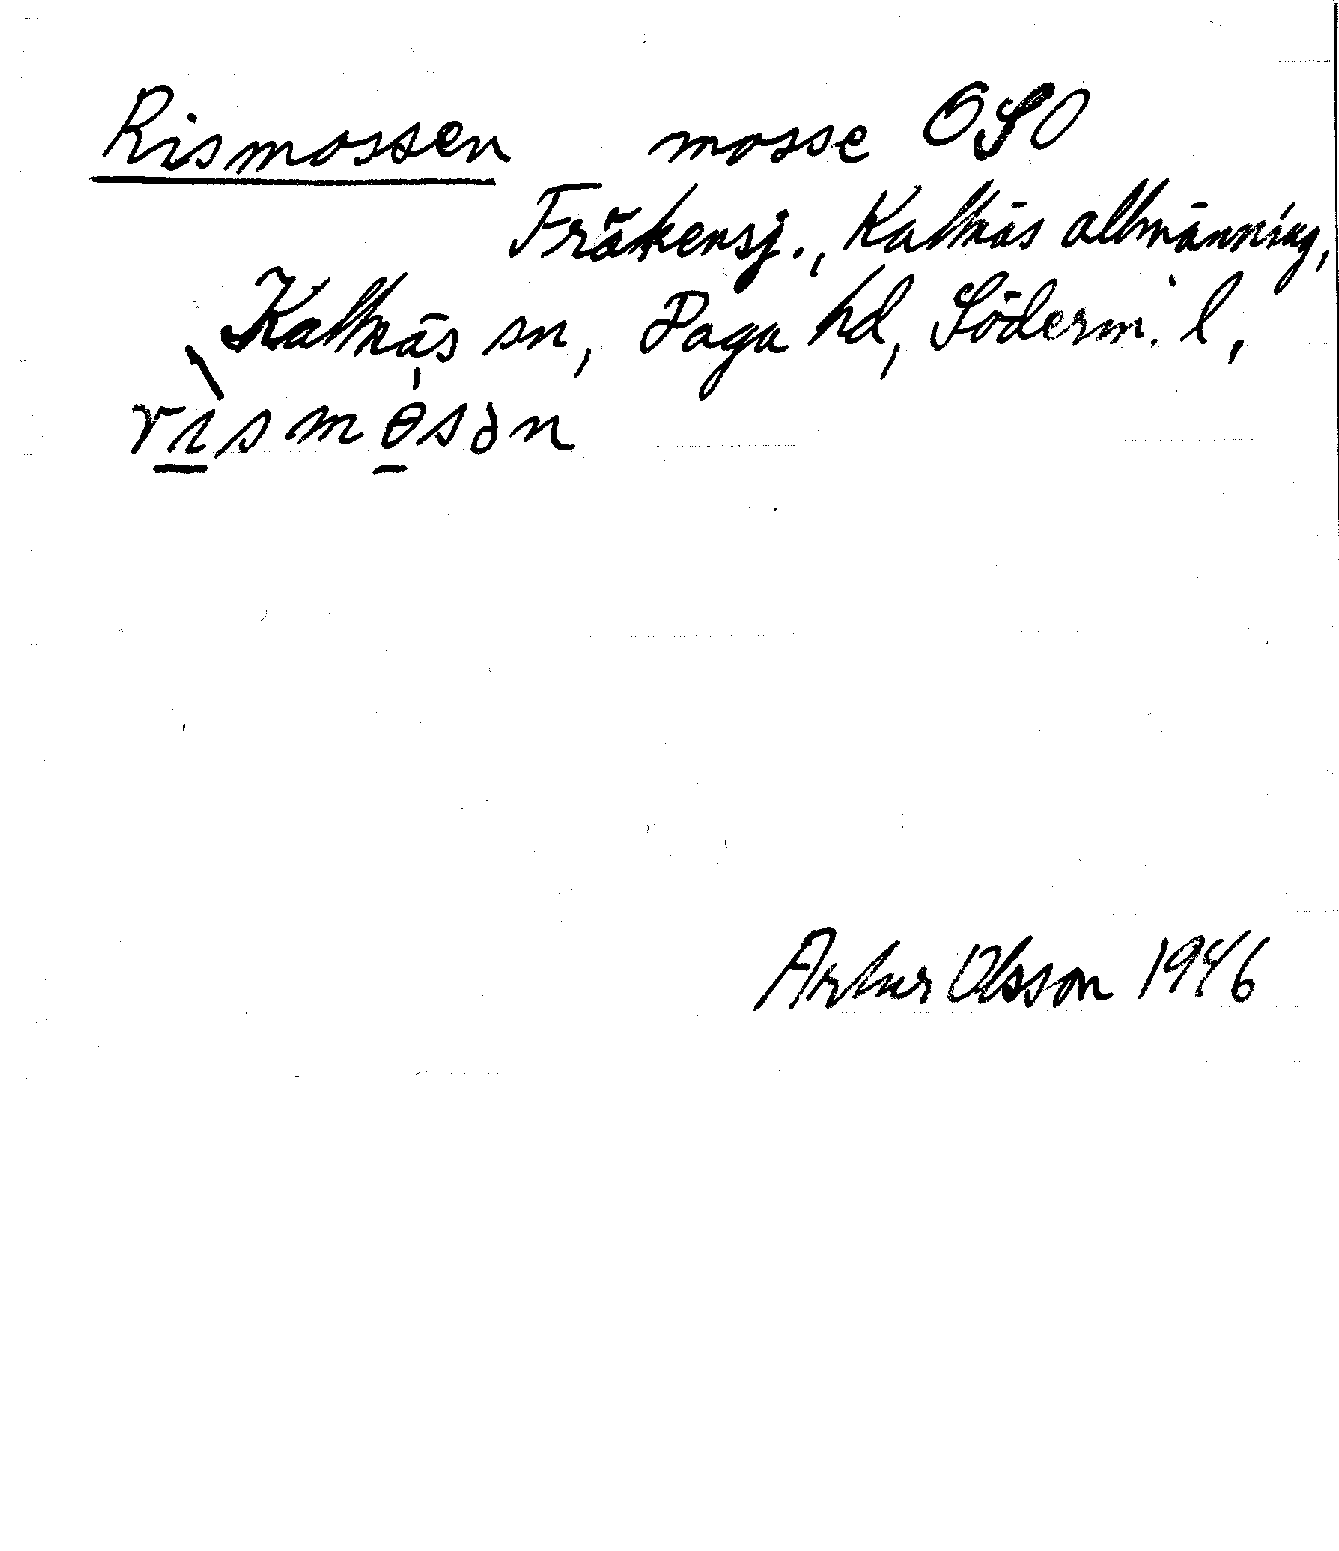 Rismossen mosse OSO
Fräkensj., Kattnäs allmänning,
Kattnäs sn, Daga hd, Söderm. l,
rismɵsən
Artur Olsson 1946